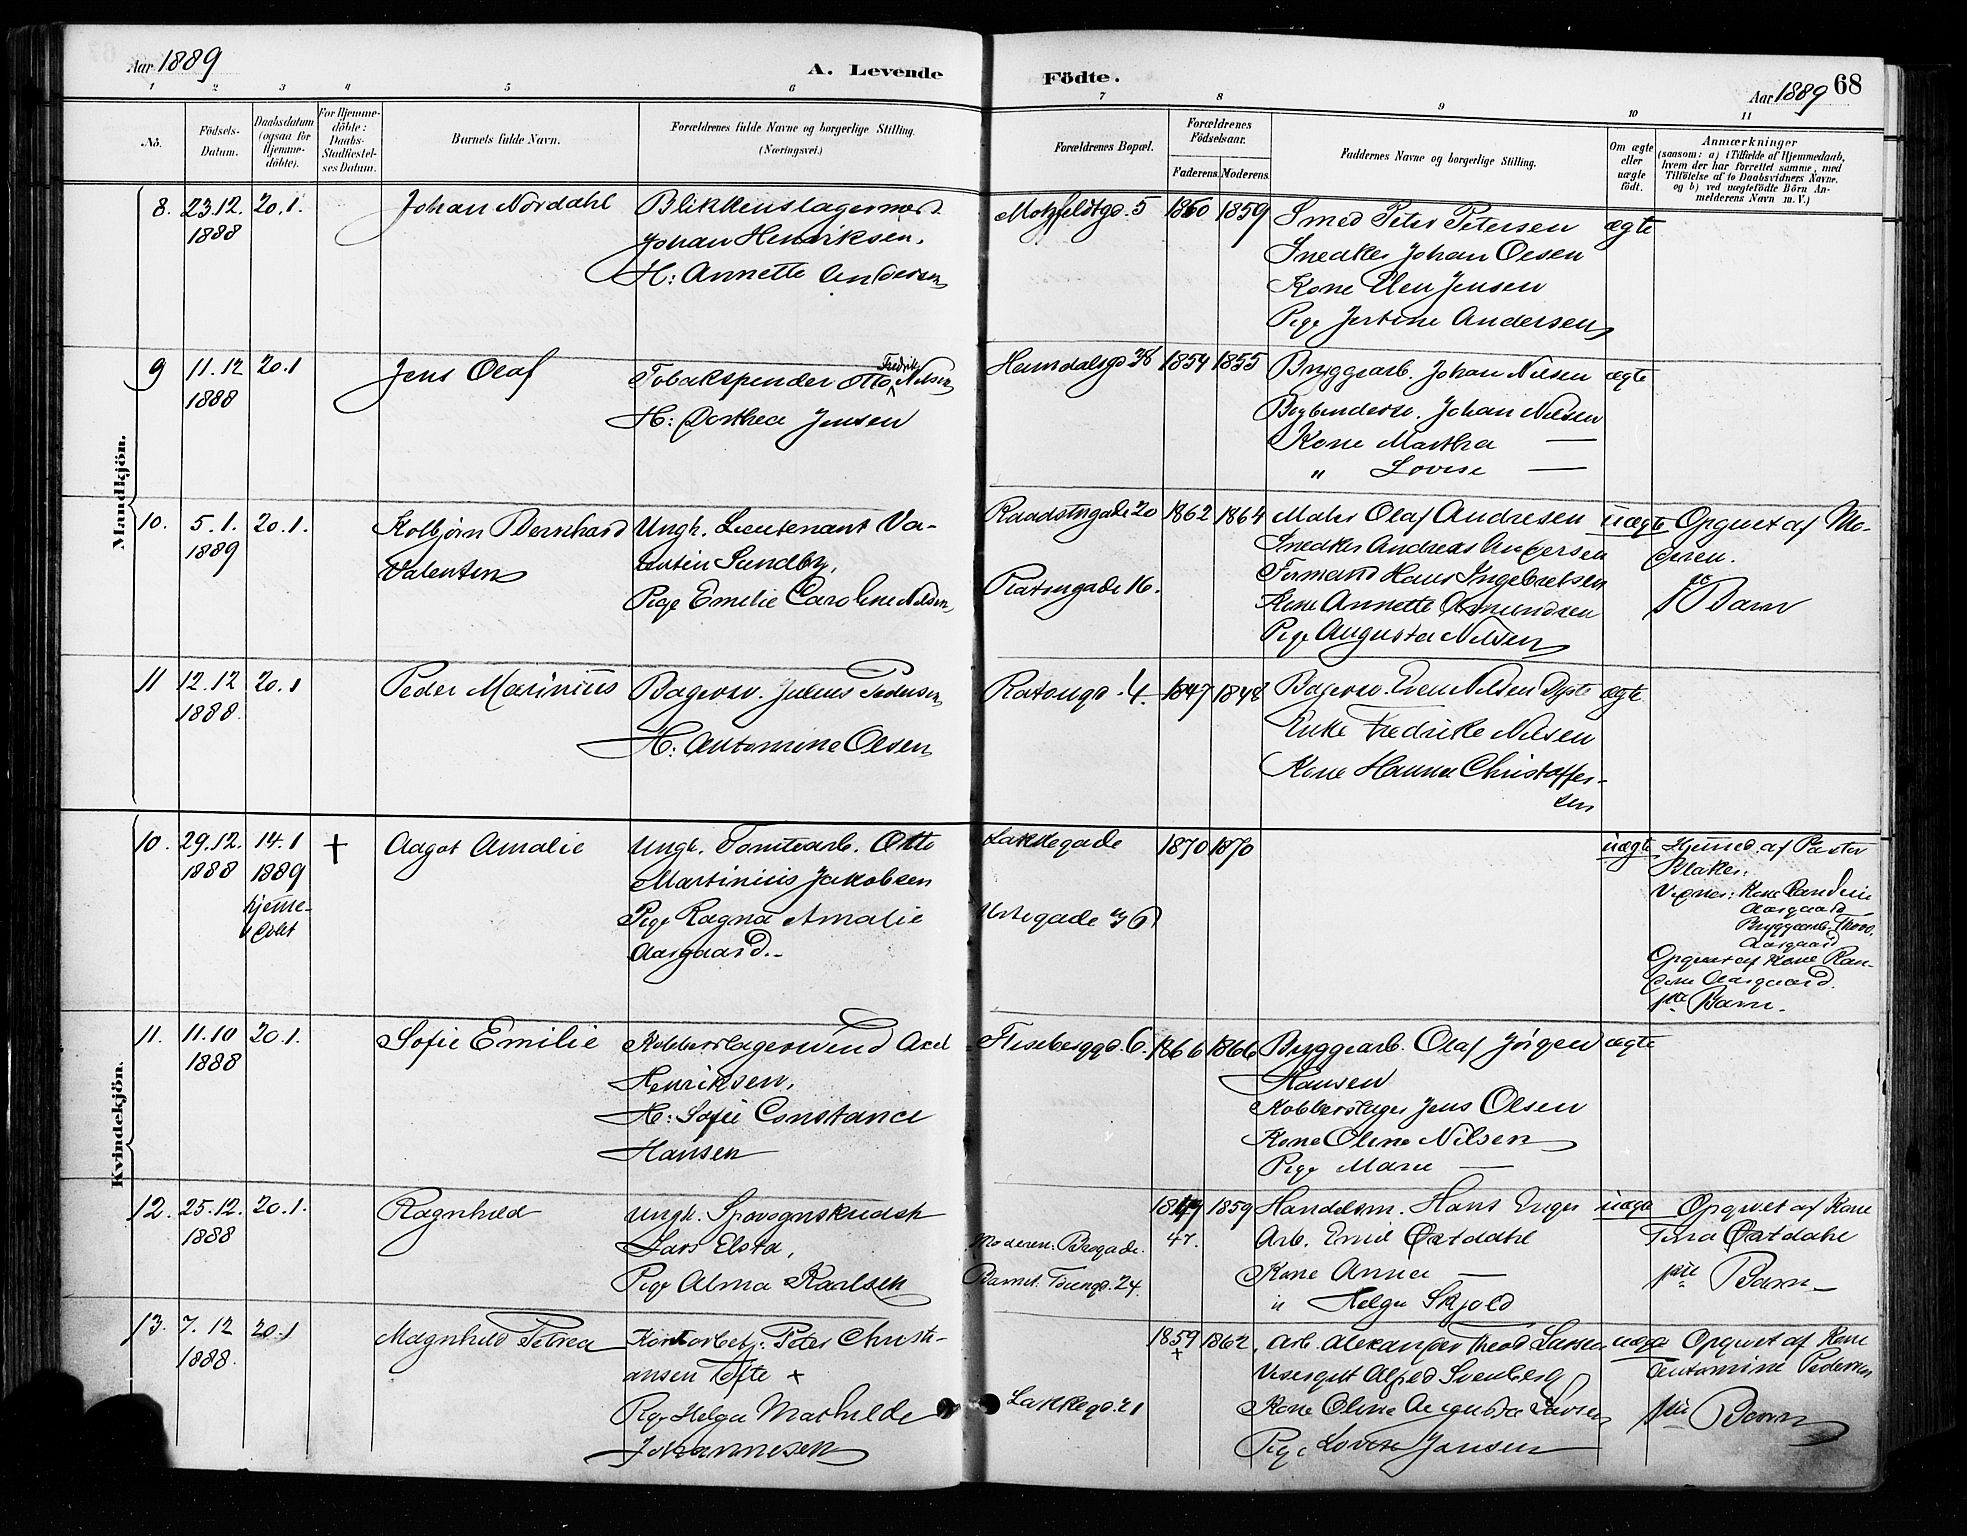 Aar 1889
A. Levende
Födte.
Aar 1889
68
1 2 3 4 5 6 7 8 9 10 11
No.
Födsels-
Datum.
Daabsdatum
(ogsaa for
Hjemme-
döbte).
For Hjemme-
döbte:
Daabs-
Stadfæstel-
ses Datum.
Barnets fulde Navn.
Forældrenes fulde Navne og borgerlige Stilling.
(Næringsvei.)
Forældrenes Bopæl.
Forældrenes
Födselsaar.
Faderens. Moderens.
Faddernes Navne og borgerlige Stilling.
Om ægte
eller
uægte
födt.
Anmærkninger
(saasom: a) i Tilfælde af Hjemmedaab,
hvem der har forrettet samme, med
Tilföielse af to Daabsvidners Navne.
og b) ved uægtefödte Börn An-
melderens Navn m. V.)
Mandkjön.
8. 23.12. 1888
20.1.
Johan Nordahl
Blikkenslagermest.
Johan Henriksen.
H: Annette Andersen
Motzfeldtgd. 5
1860 1859
Smed Peter Petersen
Snedker Johan Olsen
Kone Elen Jensen
Pige Jertine Andersen
ægte
9 11.12 1888
20.1
Jens Olaf
Tobakspinder Otto Fredrik Nilsen
H: Dorthea Jensen
Heimdalsgd 38
1854 1855
Bryggearb. Johan Nilsen
Johan Nilsen
Kone Martha —
" Lovise —
ægte
10. 5.1. 1889
20.1.
Kolbjørn Bernhard
Valentin
Ungk. Lieutenant Va-
lentin Sundby,
Pige Emilie Caroline Nilsen
Raadstugade 20
Platousgade 16.
1862 1864
Maler Olaf Andresen
Snedker Andreas Andersen
Formand Hans Ingebretsen
Kone Annette Amundsen
Pige Augusta Nilsen
uægte
Opgivet af Mo-
deren.
Barn
11 12.12 1888.
20.1
Peder Marinius
Bagersv. Julius Pedersen
H: Antomine Olsen
Platougd. 4.
1847 1848
Bagersv. Even Nilsen Dyste
Enke Fredrike Nilsen
Kone Hanna Christoffer-
sen
ægte
Kvindekjön.
10. 29.12. 1888
14.1
1889
hjemme-
døbt
+
Aagot Amalie
Ungk. Tomtearb. Otto
Martinius Jakobsen
Pige Ragna Amalie
Aasgaard.
Lakkegade
Urtegade
1870 1870
uægte
Hjemmed. af Pastor
Blakar.
Vidner: Kone Randine
Aasgaard
Bryggearb. Thorv.
Aasgaard
Opgivet af Kone Ran-
dine Aasgaard.
Barn.
11. 11.10 1888
20.1.
Sofie Emilie
Kobberslagersvend Axel
Henriksen,
H: Sofie Constance
Hansen
Flisebergd. 6.
1866 1866
Bryggearb. Olaf Jörgen
Hansen
Kobberslager Jens Olsen
Kone Oline Nilsen
Pige Marie —
ægte
12. 25.12. 1888
20.1.
Ragnhild
Ungk. Sporvognskudsk
Lars Elsta,
Pige Alma Karlsen
Moderen:
Barnet: 24.
47. 1859
Handelsm. Hans Enger
Arb. Emil Østdahl
Kone Anna —
" Helga Skjold
uægte
Opgivet af Kone
Tina Østdahl
Barn
13. 7.12 1888.
20.1
Magnhild Petrea
Kontorbetj. Peter Christi-
ansen Ofte +
Pige Helga Mathilde
Johannesen
Lakkegd. 21
1859 + 1862.
Arb. Alexander Theod Larsen
Visergut Alfred Svenberg
Kone Oline Augusta Larsen
Pige Lovise Jansen
uægte
Opgivet af Kone
Antomine Pedersen
Barn